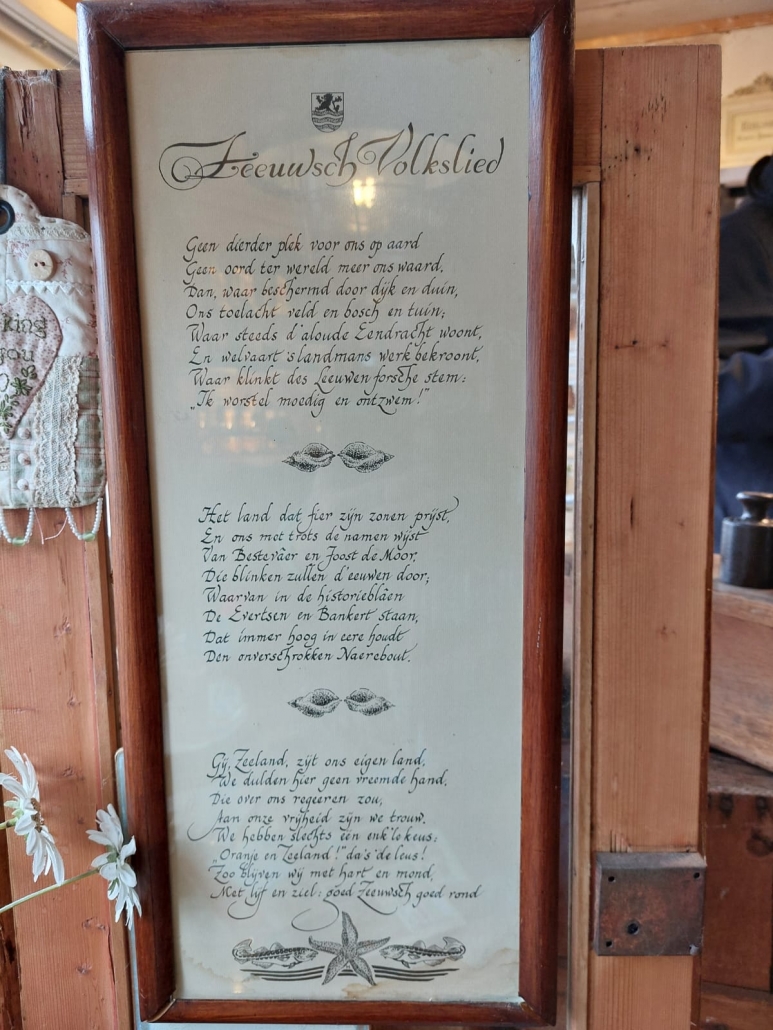 Zeeuwsch Volkslied
Geen dierder plek voor ons op aard
Geen oord ter wereld meer ons waard,
Dan, waar beschermd door dijk en duin,
Ons toelacht veld en bosch en tuin;
Waar steeds d'aloude Eendracht woont,
En welvaart 's landmans werk bekroont,
Waar klinkt des Leeuwen forsche stem:
„Ik worstel moedig en ontzwem!"
Het land dat fier zijn zonen prijst,
En ons met trots de namen wijst
Van Bestevâer en Joost de Moor,
Die blinken zullen d'eeuwen door;
Waarvan in de historieblâen
De Evertsen en Bankert staan,
Dat immer hoog in eere houdt
Den onverschrokken Naerebout.
Gij, Zeeland, zijt ons eigen land,
We dulden hier geen vreemde hand,
Die over ons regeeren zou,
Aan onze vrijheid zijn we trouw.
We hebben slechts één enk'le keus:
„Oranje en Zeeland!" da's de leus!
Zoo blijven wij met hart en mond,
Met lijf en ziel: goed Zeeuwsch goed rond
king
you